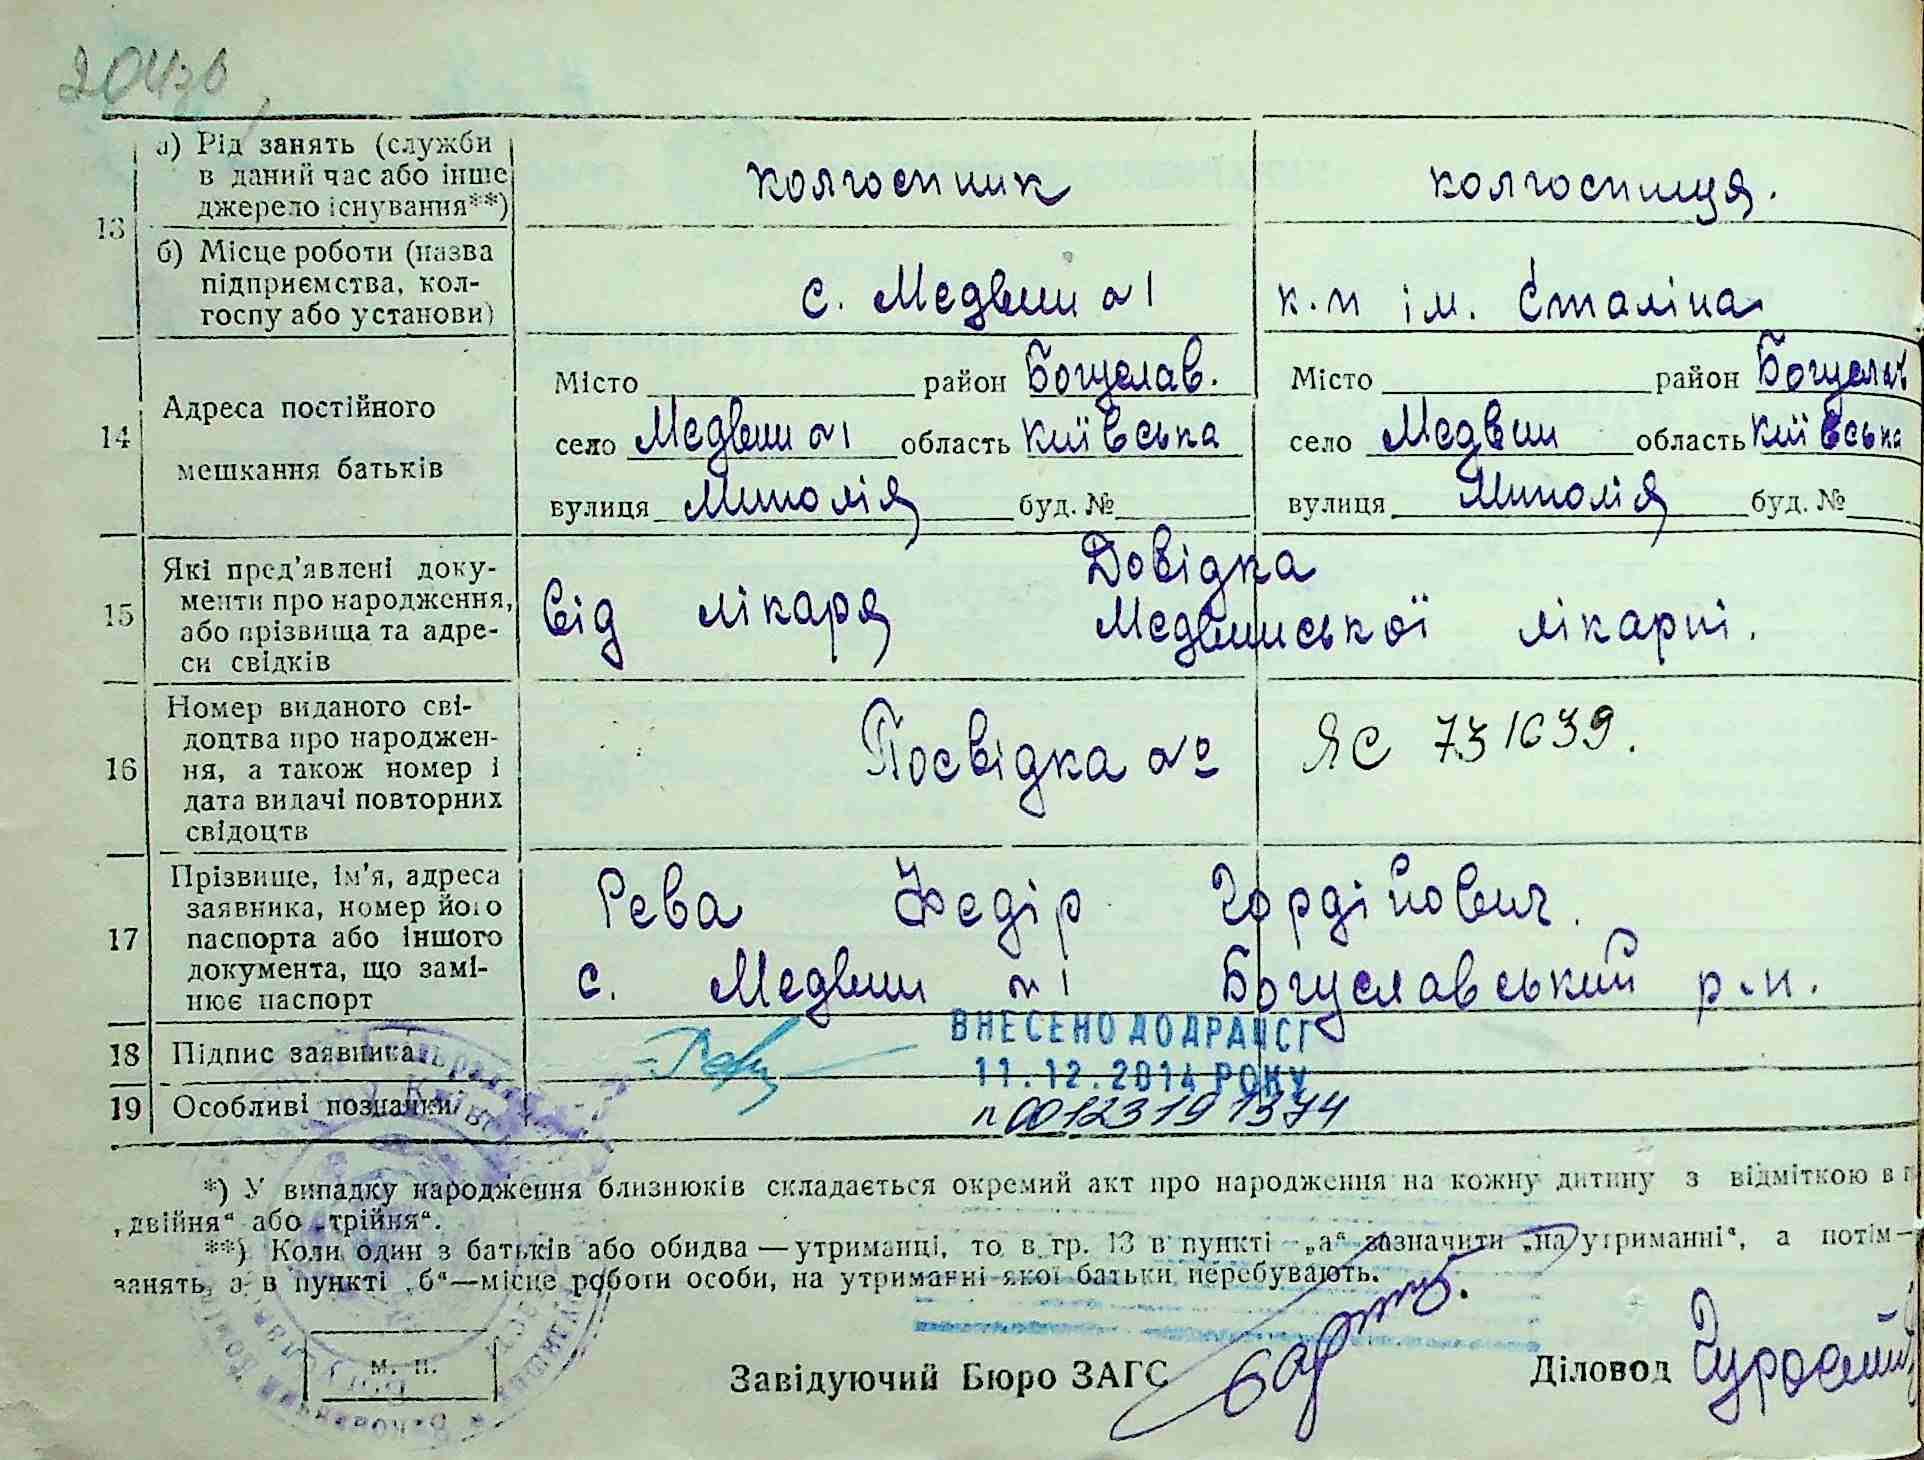 204зв
13
а) Рід занять (служби
в даний час або інше
джерело існування**)
колгоспник
колгоспиця.
б) Місце роботи (назва
підприємства, кол-
госпу або установи)
с. Медвин №1
к.п ім. Сталіна
14
Адреса постійного
мешкання батьків
Місто район Богуслав.
село Медвин №1 область Київська
вулиця Миколія буд. №
Місто район Богуслав
село Медвин область Київська
вулиця Миколія буд. №
15
Які пред’явлені доку-
менти про народження,
або прізвища та адре-
си свідків
Довідка
від лікаря Медвинської лікарні.
16
Номер виданого сві-
доцтва про народжен-
ня, а також номер і
дата видачі повторних
свідоцтв
Посвідка № ЯС 731639.
17
Прізвище, ім’я, адреса
заявника, номер його
паспорта або іншого
документа, що замі-
нює паспорт
Рева Федір Гордійович.
с. Медвин №1 Богуславський р-н.
18 Підпис заявника
Рева
ВНЕСЕНО ДО ДРАЦСГ
11.12.2014 РОКУ
19 Особливі позначки
п 00123191374
*) У випадку народження близнюків складається окремий акт про народження на кожну дитину з відміткою в г
„двійня“ або „трійня“.
**) Коли один з батьків або обидва—утриманці, то в гр. 13 в пункті „а“ зазначити „на утриманні“, а потім—
занять, а в пункті „б“—місце роботи особи, на утриманні якої батьки перебувають.
м. п.
Завідуючий Бюро ЗАГС
Діловод